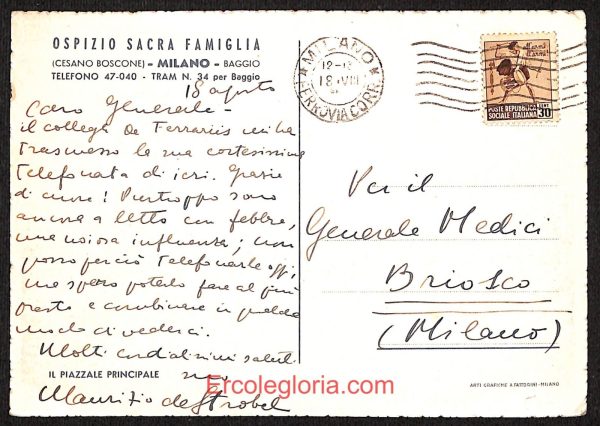 OSPIZIO SACRA FAMIGLIA
(CESANO BOSCONE) - MILANO - BAGGIO
TELEFONO 47-040 - TRAM N. 34 per Baggio
18 agosto
Caro Generale -
il collega De Ferrariis mi ha
trasmesso la sua cortesissima
telefonata di ieri. Grazie
di cuore! Purtroppo sono
ancora a letto con febbre,
una noiosa influenza; non
posso perciò telefonarle oggi,
ma spero poterlo fare al più
presto e combinare in qualche
modo di vederci.
Molti cordialissimi saluti
IL PIAZZALE PRINCIPALE
suo
Maurizio de Strobel
MILANO
12-13
18.VIII
FERROVIA CORR.
POSTE REPUBBLICA
SOCIALE ITALIANA
CENT.
30
Per il
Generale Medici
Briosco
(Milano)
ARTI GRAFICHE A. FATTORINI - MILANO
Ercolegloria.com